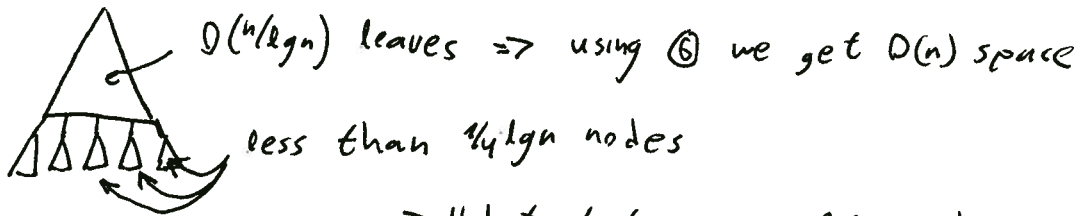 O(n/lgn) leaves => using ⑥ we get O(n) space
less than 1/4 lgn nodes